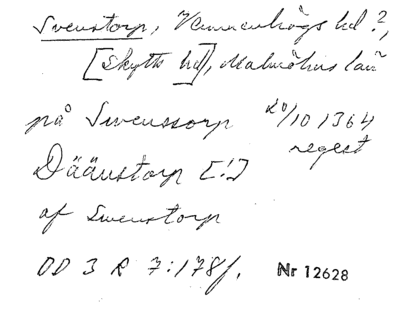 Svenstorp, Vemmenhögs hd ?,
[Skytts hd], Malmöhus län
på Swenssorp 20/10 1364
regest
Dääustorp [!]
af Swenstorp
DD 3 R 7:178f. Nr 12628